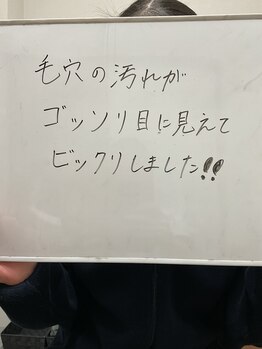 毛穴の汚れが
ゴッソリ目に見えて
ビックリしました!!